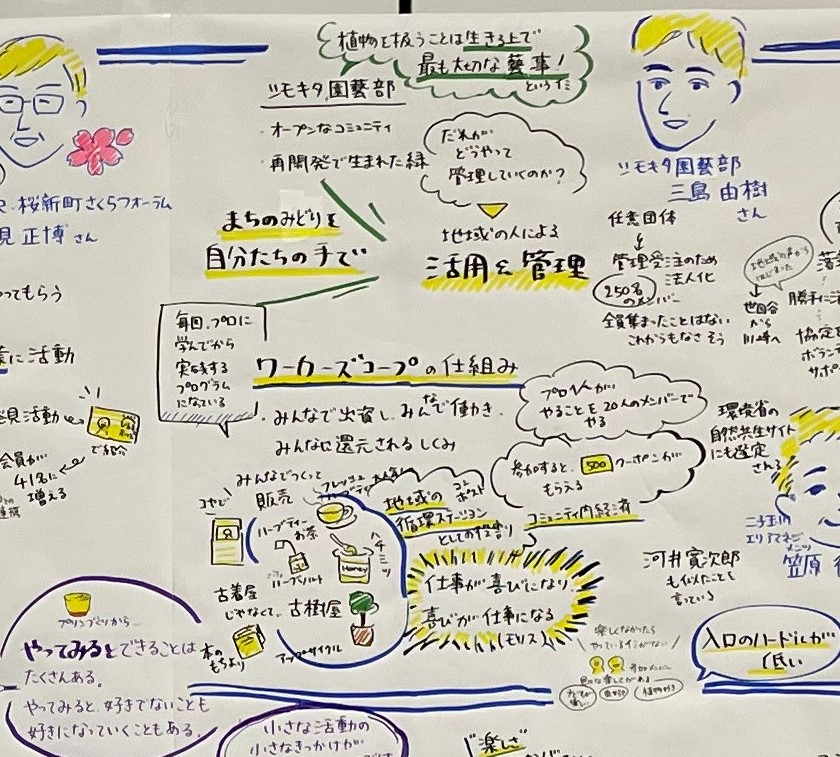 植物を扱うことは生きる上で
最も大切な藝事!
ツモキタ園藝部
・オープンなコミュニティ
・再開発で生まれた緑
だれが
どうやって
管理していくのか?
まちのみどりを
自分たちの手で
地域の人による
活用&管理
ツモキタ園藝部
三島 由樹
さん
任意団体
管理受注のため
法人化
250名
のメンバー
全員集まったことはない
これからもなさそう
世田谷
から
桜新町さくらフォーラム
見 正博 さん
ってもらう
に活動
見活動
会員が
41名に
増える
毎回、プロに
学んでから
実践する
プログラム
になっている
ワーカーズコープの仕組み
・みんなで出資し、みんなで働き、
みんなに還元されるしくみ
プロ1人が
やることを20人のメンバーで
やる
参加すると、500クーポンが
もらえる
コミュニティ内経済
環境省の
自然共生サイト
にも選定
される
二子玉川
エリアマネジ
メンツ
笠原
みんなでつくって
販売
フレッシュ
ハーブティー
お茶
ハチミツ
Honey
地域の
コンポスト
循環ステーション
としての役割り
古着屋
じゃなくて、古樹屋
本の
もちより
アップサイクル
仕事が喜びになり
喜びが仕事になる
(モリス)
河井寛次郎
も似たことを
言っている
楽しくなかったら
やっているイミがない
植物好き
入口のハードルが
低い
プリンづくりから
やってみるとできることは
たくさんある。
やってみると、好きでないことも
好きになっていくこともある。
小さな活動の
小さなきっかけが
"楽しさ"